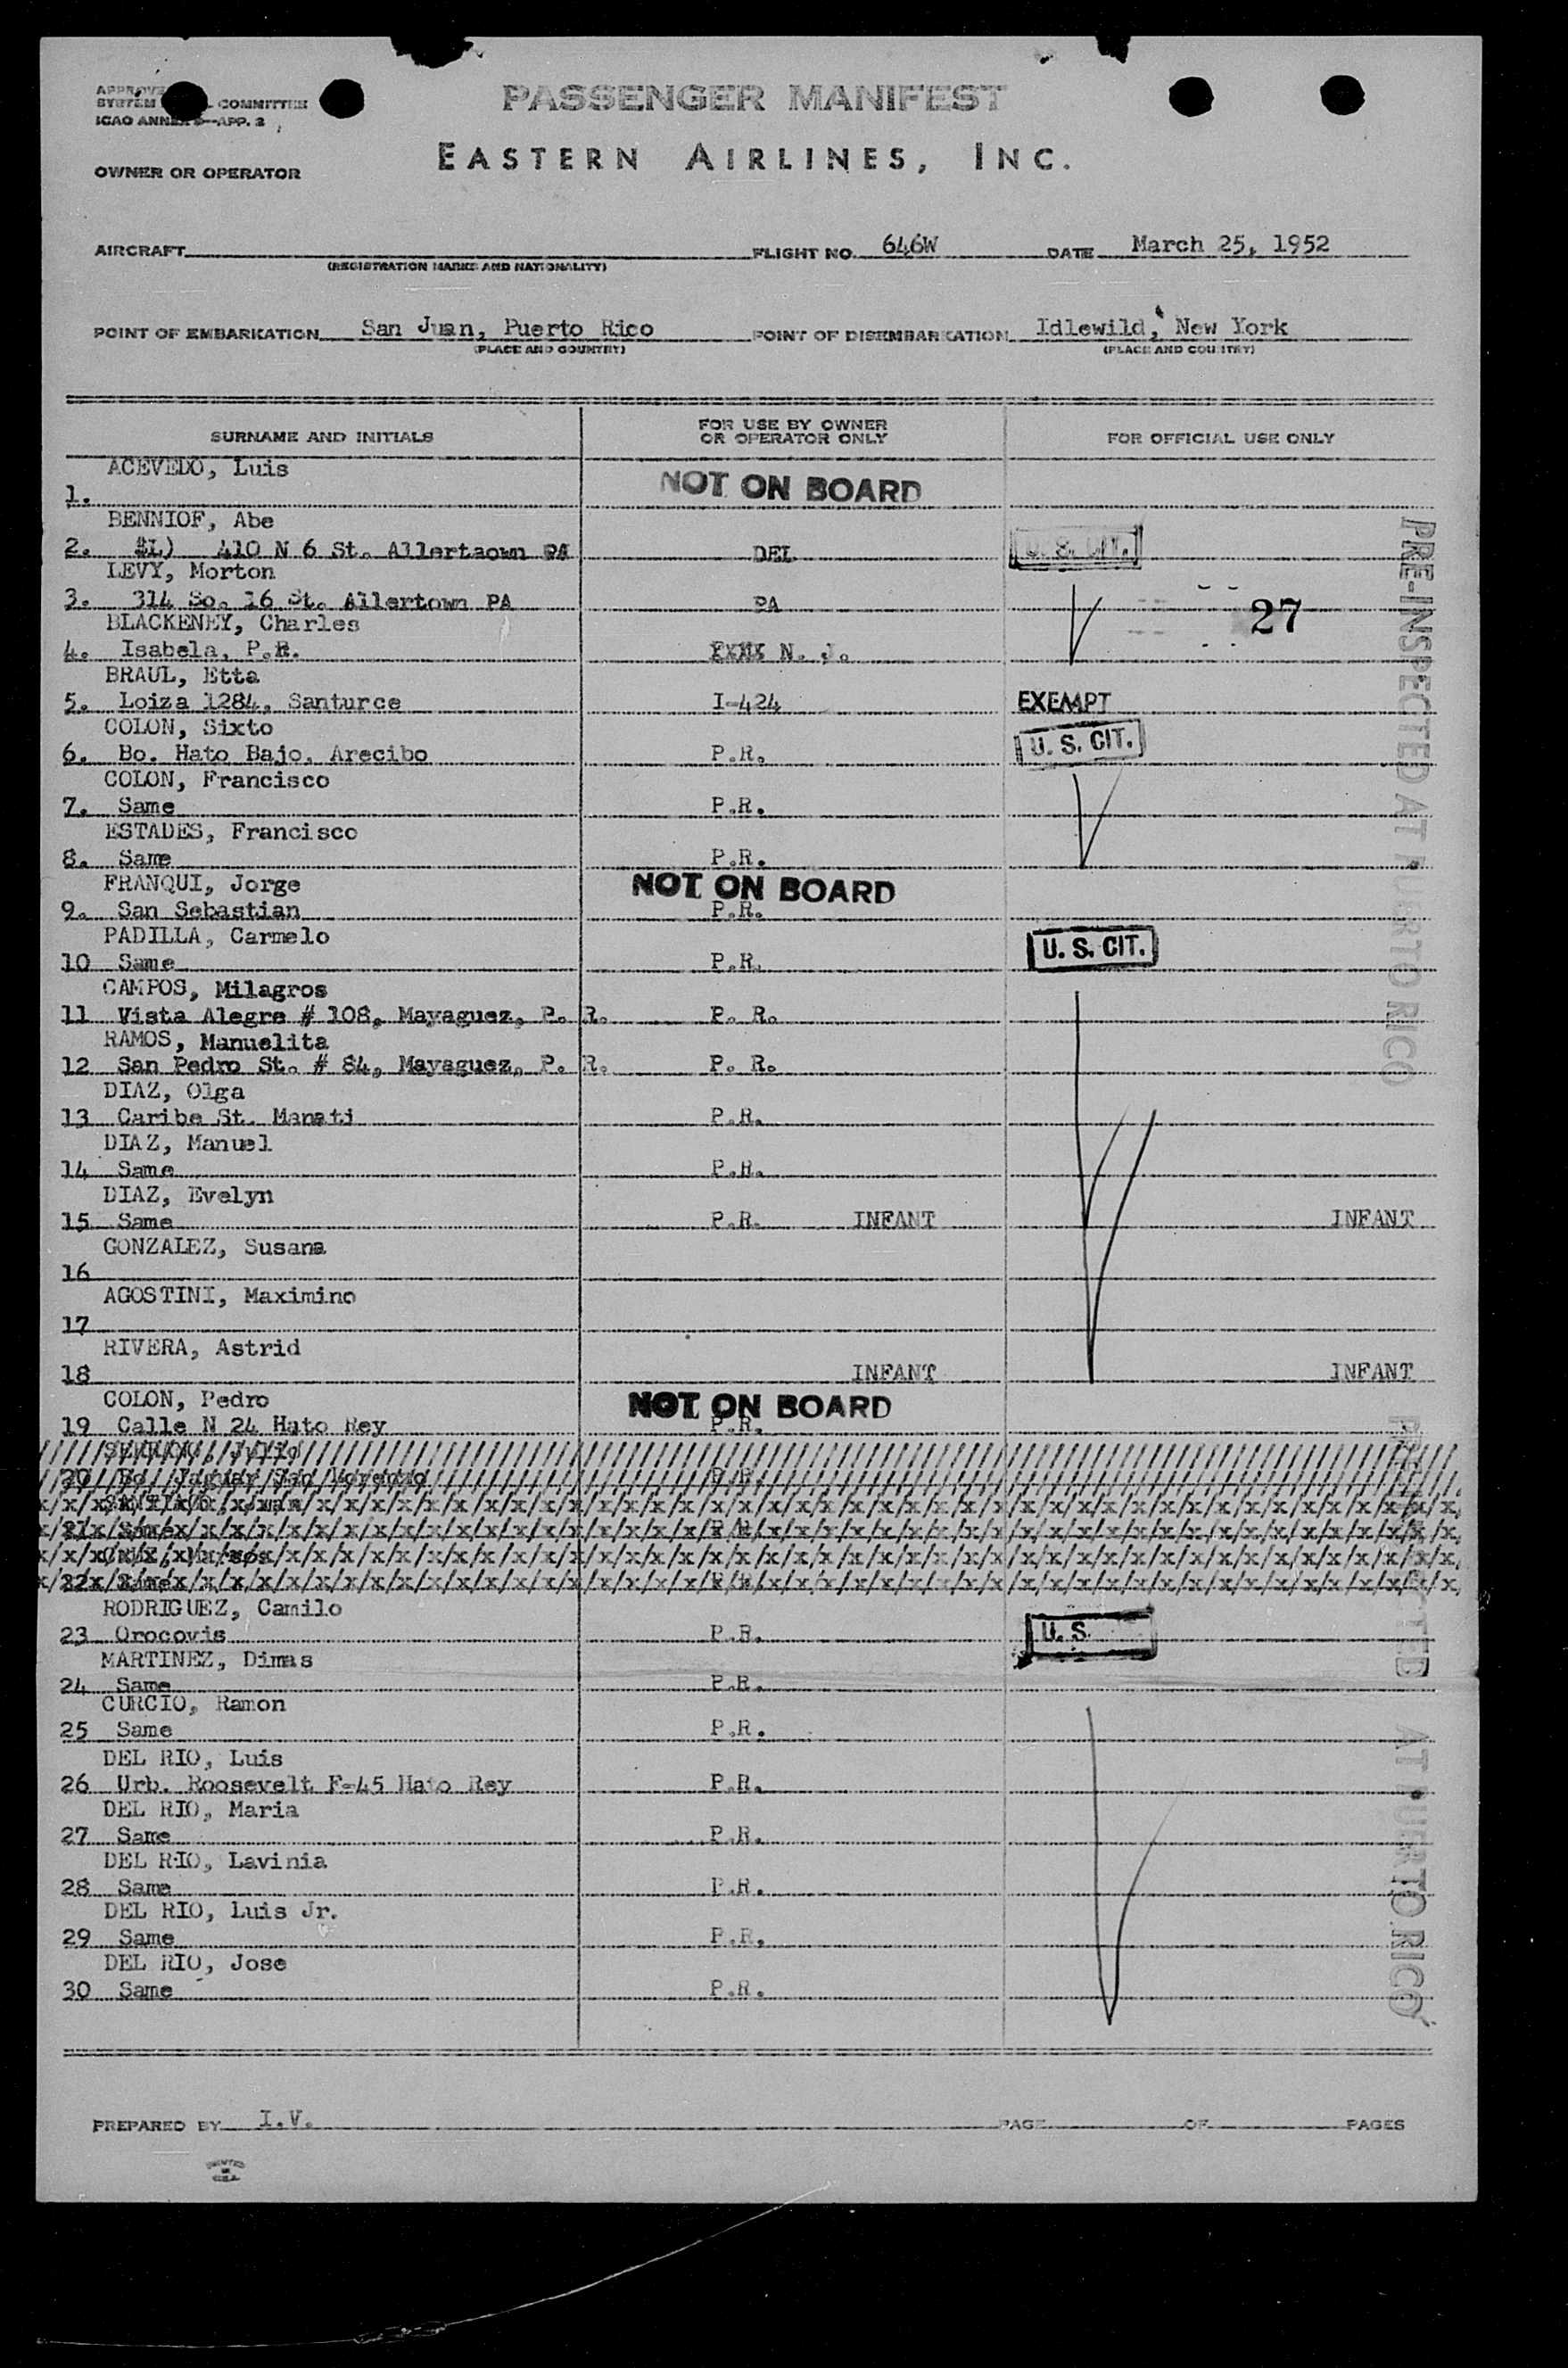 PASSENGER MANIFEST
COMMITTEE
ICAO ANNEX 9—APP. 2
EASTERN AIRLINES, INC.
OWNER OR OPERATOR
AIRCRAFT FLIGHT NO. 646W DATE March 25, 1952
(REGISTRATION MARKS AND NATIONALITY)
POINT OF EMBARKATION San Juan, Puerto Rico POINT OF DISEMBARKATION Idlewild, New York
(PLACE AND COUNTRY) (PLACE AND COUNTRY)
SURNAME AND INITIALS FOR USE BY OWNER OR OPERATOR ONLY FOR OFFICIAL USE ONLY
ACEVEDO, Luis
1. NOT ON BOARD
BENNIOF, Abe
2. #L) 410 N 6 St. Allertaown PA DEL U. S. CIT.
LEVY, Morton
3. 314 So. 16 St. Allertown PA PA 27
BLACKENEY, Charles
4. Isabela, P.R. N. J.
BRAUL, Etta
5. Loiza 1284, Santurce I-424 EXEMPT
COLON, Sixto
6. Bo. Hato Bajo, Arecibo P.R. U. S. CIT.
COLON, Francisco
7. Same P.R.
ESTADES, Francisco
8. Same P.R.
FRANQUI, Jorge NOT ON BOARD
9. San Sebastian P.R.
PADILLA, Carmelo
10 Same P.R. U. S. CIT.
CAMPOS, Milagros
11 Vista Alegre # 108, Mayaguez, P. R. P. R.
RAMOS, Manuelita
12 San Pedro St. # 84, Mayaguez, P. R. P. R.
DIAZ, Olga
13 Caribe St. Manati P.R.
DIAZ, Manuel
14 Same P.R.
DIAZ, Evelyn
15 Same P.R. INFANT INFANT
GONZALEZ, Susana
16
AGOSTINI, Maximino
17
RIVERA, Astrid
18 INFANT INFANT
COLON, Pedro NOT ON BOARD
19 Calle N 24 Hato Rey P.R.
20
21 Same
22 Same
RODRIGUEZ, Camilo
23 Orocovis P.R. U. S.
MARTINEZ, Dimas
24 Same P.R.
CURCIO, Ramon
25 Same P.R.
DEL RIO, Luis
26 Urb. Roosevelt F-45 Hato Rey P.R.
DEL RIO, Maria
27 Same P.R.
DEL RIO, Lavinia
28 Same P.R.
DEL RIO, Luis Jr.
29 Same P.R.
DEL RIO, Jose
30 Same P.R.
PRE-INSPECTED AT PUERTO RICO
AT PUERTO RICO
PREPARED BY I.V. PAGE OF PAGES